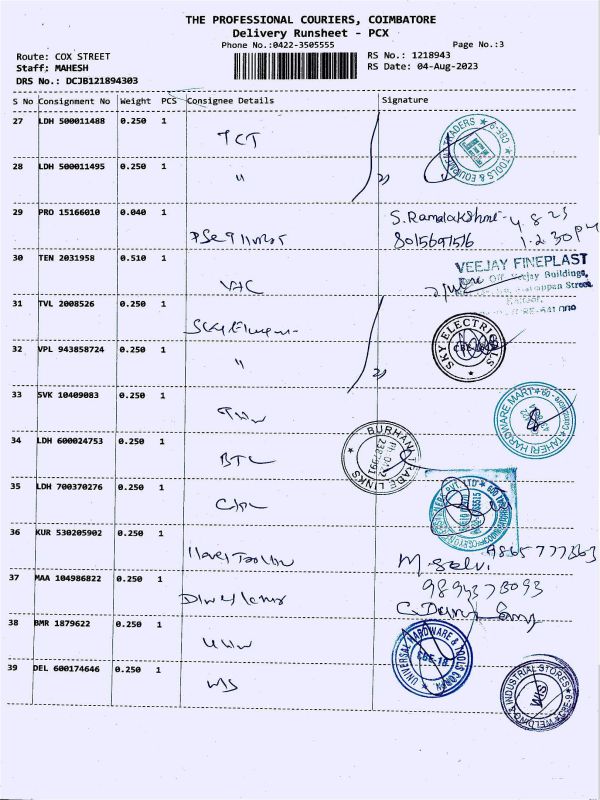 THE PROFESSIONAL COURIERS, COIMBATORE
Delivery Runsheet - PCX
Phone No.:0422-3505555 Page No.:3
Route: COX STREET RS No.: 1218943
Staff: MAHESH RS Date: 04-Aug-2023
DRS No.: DCJB121894303
S No Consignment No Weight PCS Consignee Details Signature
27 LDH 500011488 0.250 1 TCT
TOOLS & EQUIPMENT TRADERS ★ CBE-9 ★
28 LDH 500011495 0.250 1 "
29 PRO 15166010 0.040 1 S. Ramalakshmi 4 8 23
8015697516 1.2 30 PM
30 TEN 2031958 0.510 1 VAC
VEEJAY FINEPLAST
31 TVL 2008526 0.250 1
32 VPL 943858724 0.250 1 "
SKY ELECTRICALS ★
33 SVK 10409083 0.250 1
TAHERI HARDWARE MART
34 LDH 600024753 0.250 1 BTL
BURHANI TRADE LINKS ★
35 LDH 700370276 0.250 1
36 KUR 530205902 0.250 1 M. Selvi 9865777363
37 MAA 104986822 0.250 1 9894378093
38 BMR 1879622 0.250 1 UHW
UNIVERSAL HARDWARE & TOOLS CORPN ★
CBE-18
39 DEL 600174646 0.250 1 WIS
WELDING & INDUSTRIAL STORES ★ CBE-9 ★
WIS